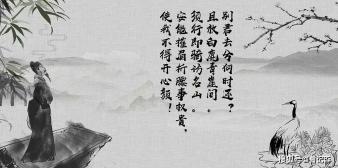 别君去兮何时还？
且放白鹿青崖间，
须行即骑访名山。
安能摧眉折腰事权贵，
使我不得开心颜！